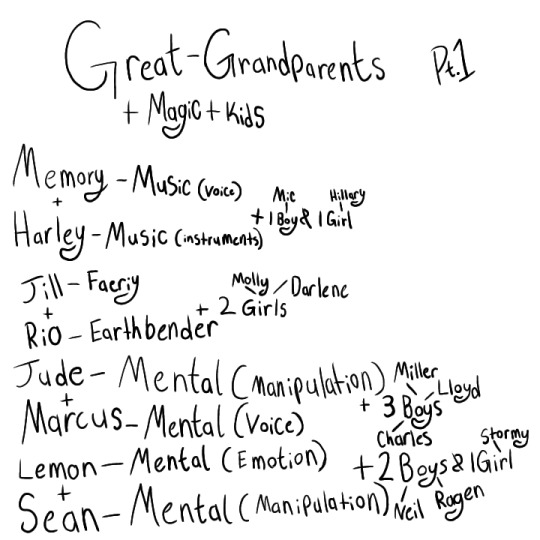 Great-Grandparents Pt.1
+ Magic + Kids
Memory - Music (voice)
+
Mic Hillary
+ 1 Boy & 1 Girl
Harley - Music (instruments)
Jill - Faeriy
+
Molly / Darlene
+ 2 Girls
Rio - Earthbender
Jude - Mental (Manipulation)
+
Miller Lloyd
+ 3 Boys
Charles
Marcus - Mental (Voice)
Lemon - Mental (Emotion)
+
Stormy
+ 2 Boys & 1 Girl
Neil Rogen
Sean - Mental (Manipulation)